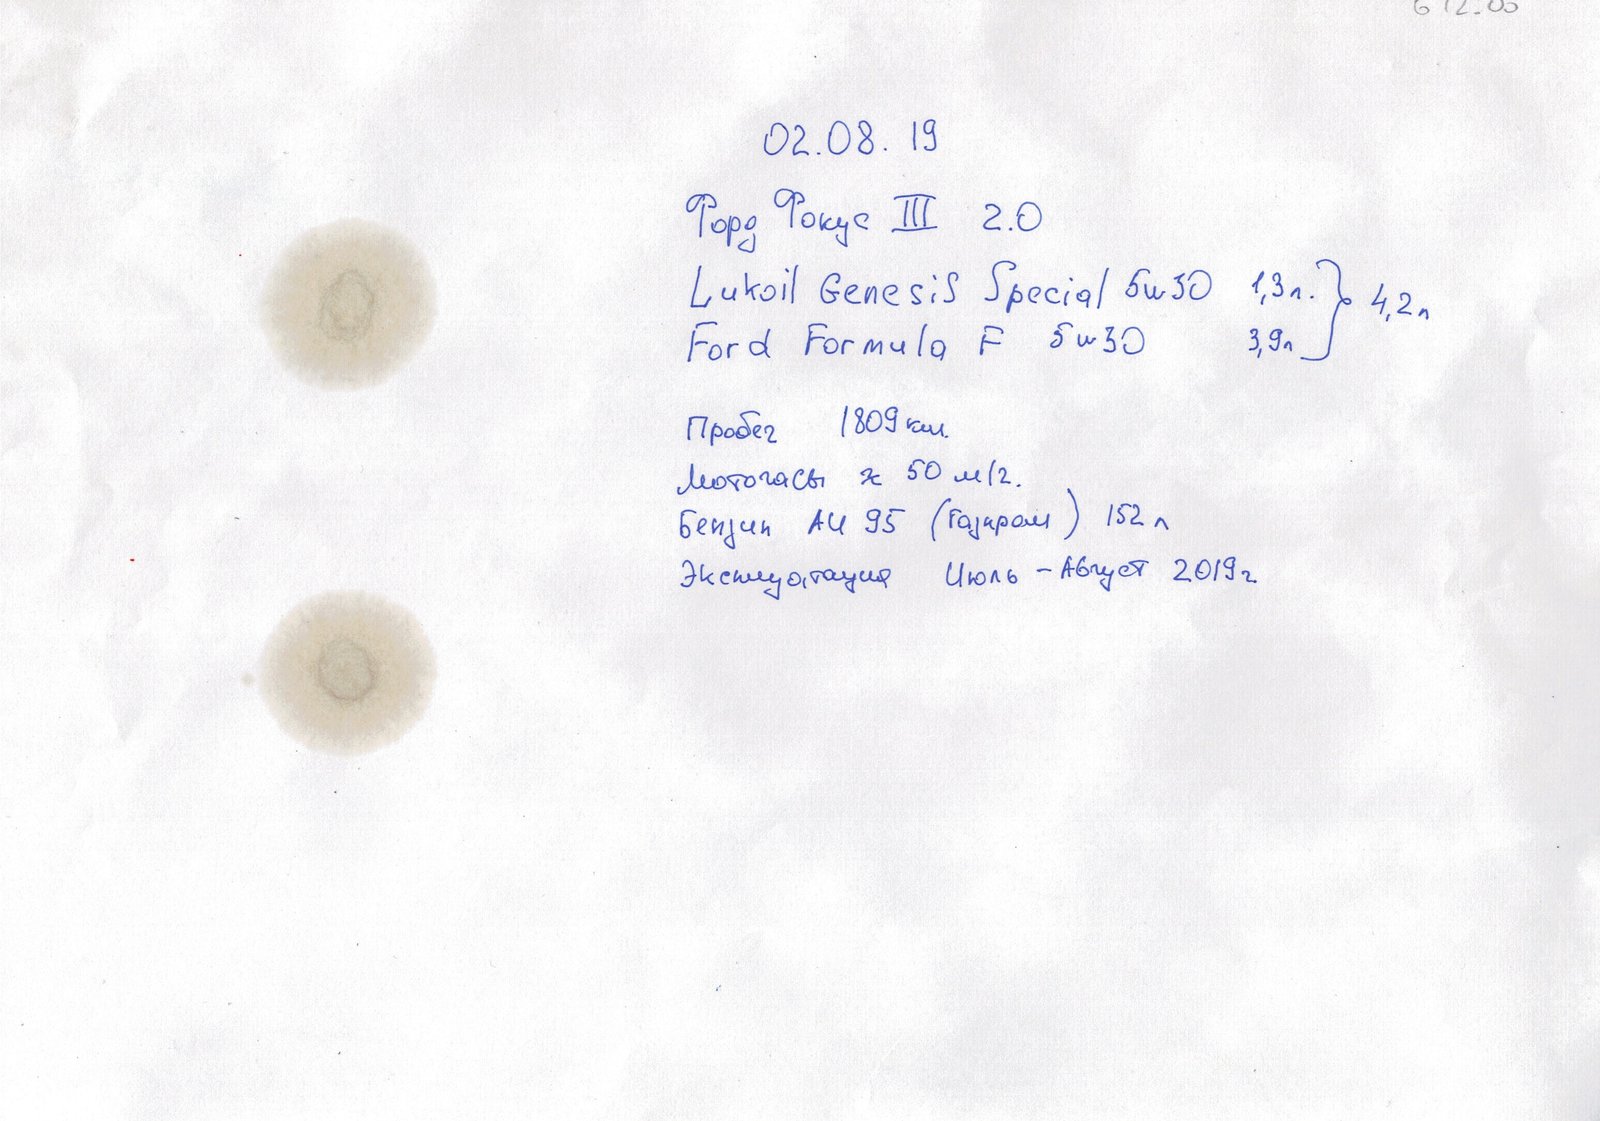 02.08.19
Форд Фокус III 2.0
Lukoil Genesis Special 5w30 1,3л.
Ford Formula F 5w30 3,9л
4,2л
Пробег 1809км.
Моточасы ≈ 50 м/г.
Бензин АИ 95 (Газпром) 152л
Эксплуатация Июль - Август 2019г